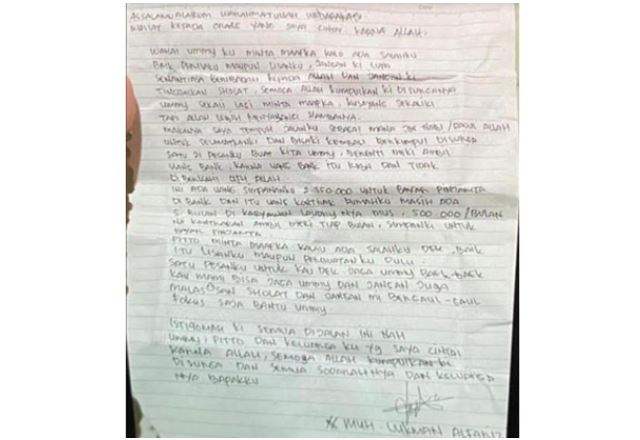 ASSALAMU ALAIKUM WARAHMATULLAH WABARAKATU
WASIAT KEPADA ORANG YANG SAYA CINTAI KARNA ALLAH.
WAHAI UMMY KU MINTA MAAFKA KALO ADA SALAHKU
BAIK PRILAKU MAUPUN LISANKU, JANGAN KI LUPA
SENANTIASA BERIBADAH KEPADA ALLAH DAN JANGAN KI
TINGGALKAN SHOLAT, SEMOGA ALLAH KUMPULKAN KI DI SURGANYA
UMMY SEKALI LAGI MINTA MAAFKA, KUSAYANG SEKALIKI
TAPI ALLAH LEBIH MENYAYANGI HAMBANYA.
MAKANYA SAYA TEMPUH JALANKU SEBAGAI MANA JLN NABI / RASUL ALLAH
UNTUK SELAMATKANKI DAN BISAKI KEMBALI BERKUMPUL DI SURGA
SATU JI PESANKU BUAT KITA UMMY, BERENTI MEKI AMBIL
UANG BANK KARNA UANG BANK ITU RIBA DAN TIDAK
DIBERKAHI OLEH ALLAH.
INI ADA UANG SIMPANANKU 2.350.000 UNTUK BAYAR
DI BANK DAN ITU UANG KONTRAK RUMAHKU MASIH ADA
5 BULAN DI KARYAWAN LAUNDRYNYA 500.000/BULAN
AMBIL MEKI TIAP BULAN, SIMPANKI UNTUK
BAYAR
FITTO MINTA MAAFKA KALAU ADA SALAHKU DEK, BAIK
ITU LISANKU MAUPUN PERBUATANKU DULU.
SATU PESANKU UNTUK KAU DEK JAGA UMMY BAEK-BAEK
KAU MAMI BISA JAGA UMMY DAN JANGAN JUGA
MALAS SHOLAT DAN JANGAN MI BERGAUL-GAUL
FOKUS SAJA BANTU UMMY.
ISTIQOMAH KI SEMUA DIJALAN INI NAH
UMMY, FITTO DAN KELUARGA KU YG SAYA CINTAI
KARNA ALLAH, SEMOGA ALLAH KUMPULKAN KI
DISURGA DAN SEMUA SODARAHNYA DAN KELUARGA
NYA BAPAKKU
MUH. LUKMAN ALFARIZ